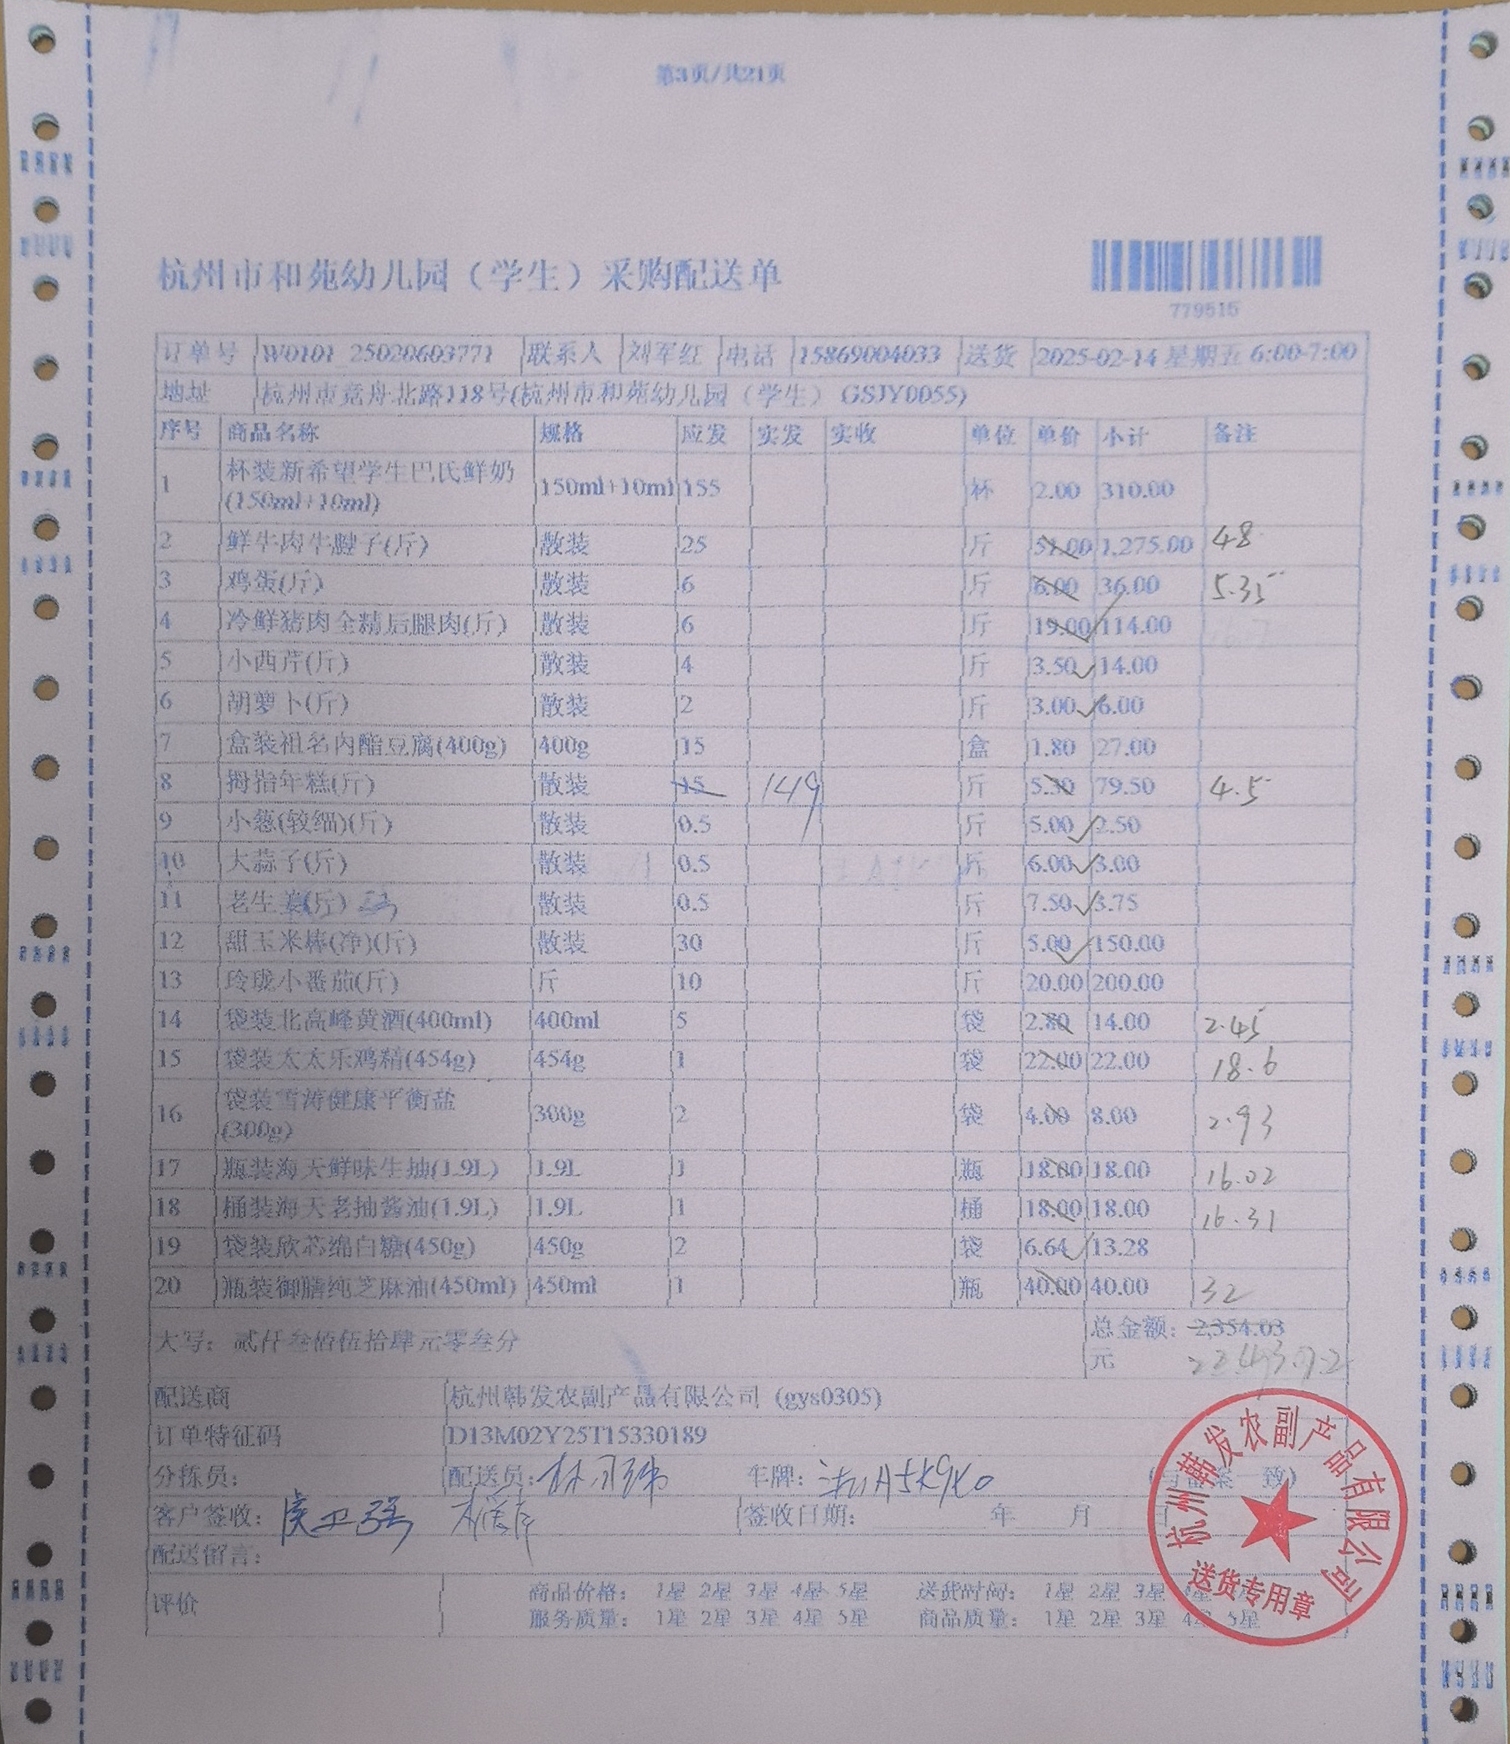 第3页/共21页
杭州市和苑幼儿园（学生）采购配送单
779515
订单号 W0101_25020603771 联系人 刘军红 电话 15869004033 送货 2025-02-14 星期五 6:00-7:00
地址 杭州市竞舟北路118号(杭州市和苑幼儿园（学生） GSJY0055)
序号 商品名称 规格 应发 实发 实收 单位 单价 小计 备注
1 杯装新希望学生巴氏鲜奶(150ml+10ml) 150ml+10ml 155 杯 2.00 310.00
2 鲜牛肉牛腱子(斤) 散装 25 斤 51.00 1,275.00 48
3 鸡蛋(斤) 散装 6 斤 6.00 36.00 5.35
4 冷鲜猪肉全精后腿肉(斤) 散装 6 斤 19.00 114.00
5 小西芹(斤) 散装 4 斤 3.50 14.00
6 胡萝卜(斤) 散装 2 斤 3.00 6.00
7 盒装祖名内酯豆腐(400g) 400g 15 盒 1.80 27.00
8 拇指年糕(斤) 散装 15 149 斤 5.30 79.50 4.5
9 小葱(较细)(斤) 散装 0.5 斤 5.00 2.50
10 大蒜子(斤) 散装 0.5 斤 6.00 3.00
11 老生姜(斤) 散装 0.5 斤 7.50 3.75
12 甜玉米棒(净)(斤) 散装 30 斤 5.00 150.00
13 玲珑小番茄(斤) 斤 10 斤 20.00 200.00
14 袋装北高峰黄酒(400ml) 400ml 5 袋 2.80 14.00 2.45
15 袋装太太乐鸡精(454g) 454g 1 袋 22.00 22.00 18.6
16 袋装雪涛健康平衡盐(300g) 300g 2 袋 4.00 8.00 2.93
17 瓶装海天鲜味生抽(1.9L) 1.9L 1 瓶 18.00 18.00 16.02
18 桶装海天老抽酱油(1.9L) 1.9L 1 桶 18.00 18.00 16.31
19 袋装欣芯绵白糖(450g) 450g 2 袋 6.64 13.28
20 瓶装御膳纯芝麻油(450ml) 450ml 1 瓶 40.00 40.00 32
大写：贰仟叁佰伍拾肆元零叁分 总金额：2,354.03
元
配送商 杭州韩发农副产品有限公司 (gys0305)
订单特征码 D13M02Y25T15330189
分拣员： 配送员： 车牌：浙A5K9X0
客户签收： 签收日期： 年 月
配送留言：
评价 商品价格： 1星 2星 3星 4星 5星 送货时间： 1星 2星 3星
服务质量： 1星 2星 3星 4星 5星 商品质量： 1星 2星 3星 4星 5星
杭州韩发农副产品有限公司
送货专用章